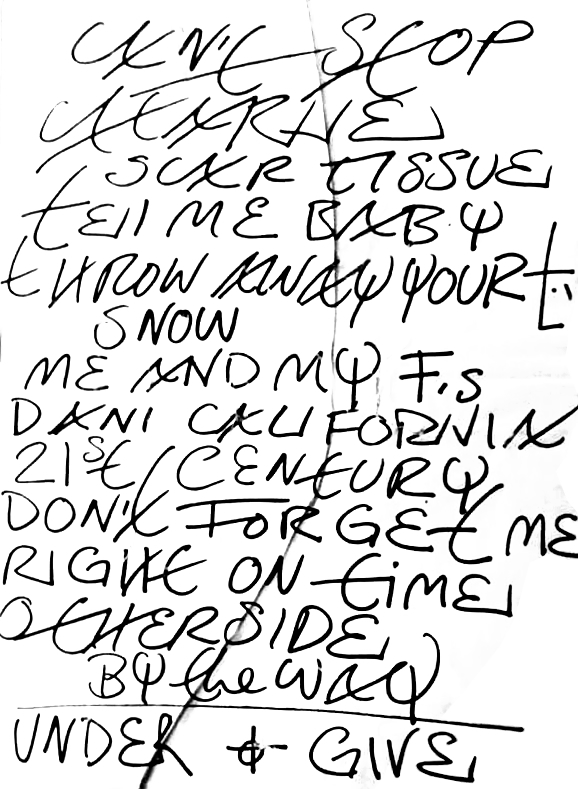 CAN'T STOP
CHARLIE
SCAR TISSUE
tell ME BABY
tHROW AWAY YOUR t.:
SNOW
ME AND MY F,s
DANI CALIFORNIA
21st CENtURY
DON'T FORGET ME
RIGHt ON tiME
OtHERSIDE
BY the WAY
UNDER + GIVE